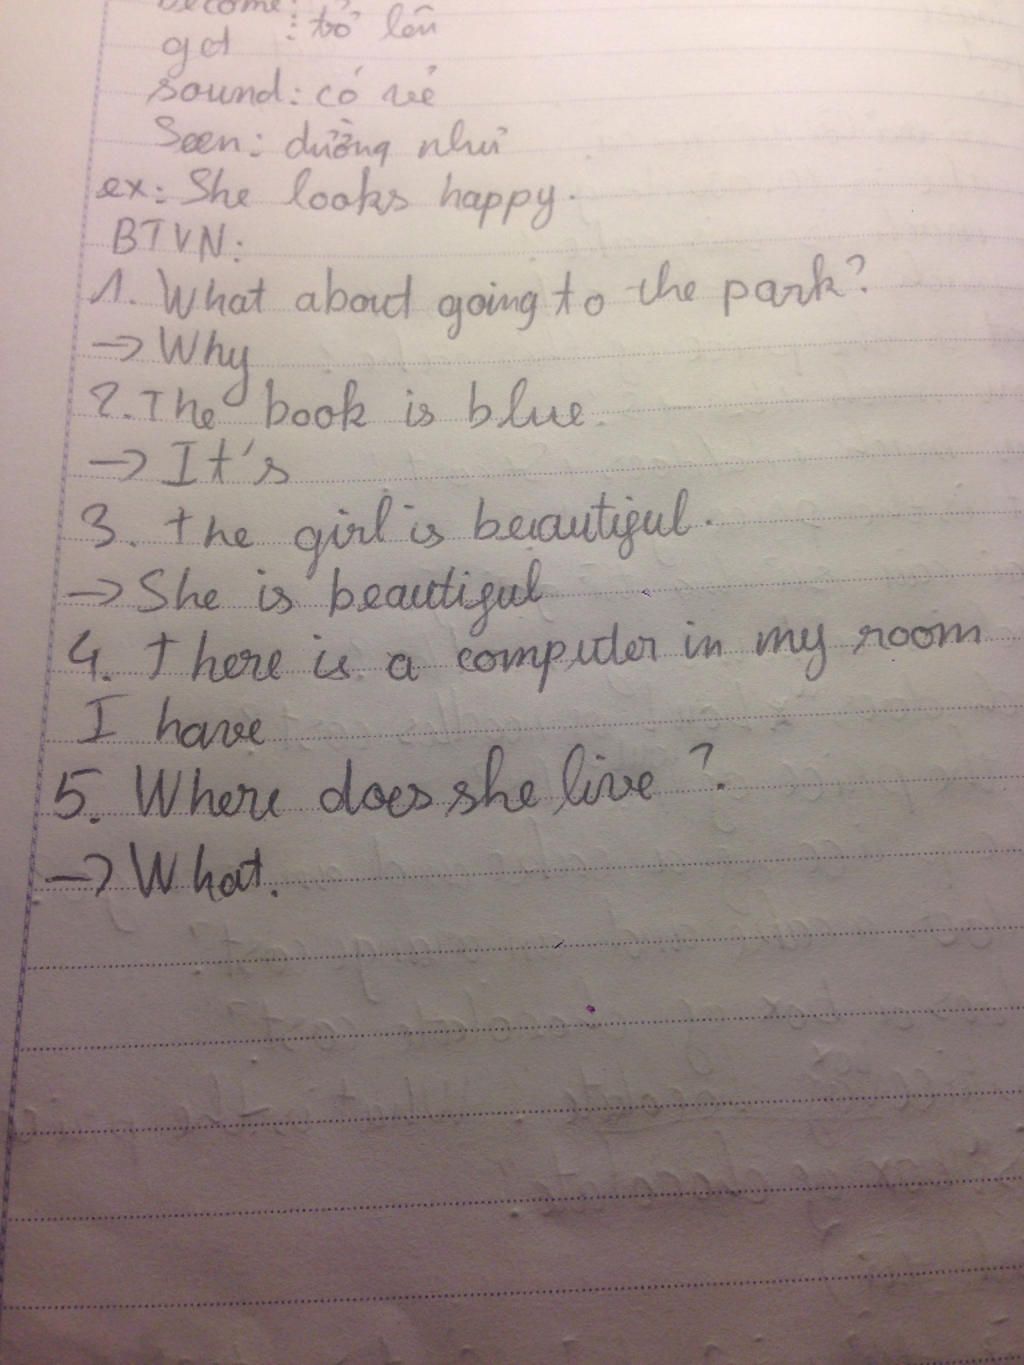 become:
get : trở lên
sound: có vẻ
Seen: dường như
ex: She looks happy.
BTVN:
1. What about going to the park?
→ Why
2. The book is blue.
→ It's
3. The girl is beautiful.
→ She is beautiful
4. There is a computer in my room
I have
5. Where does she live?
→ What.